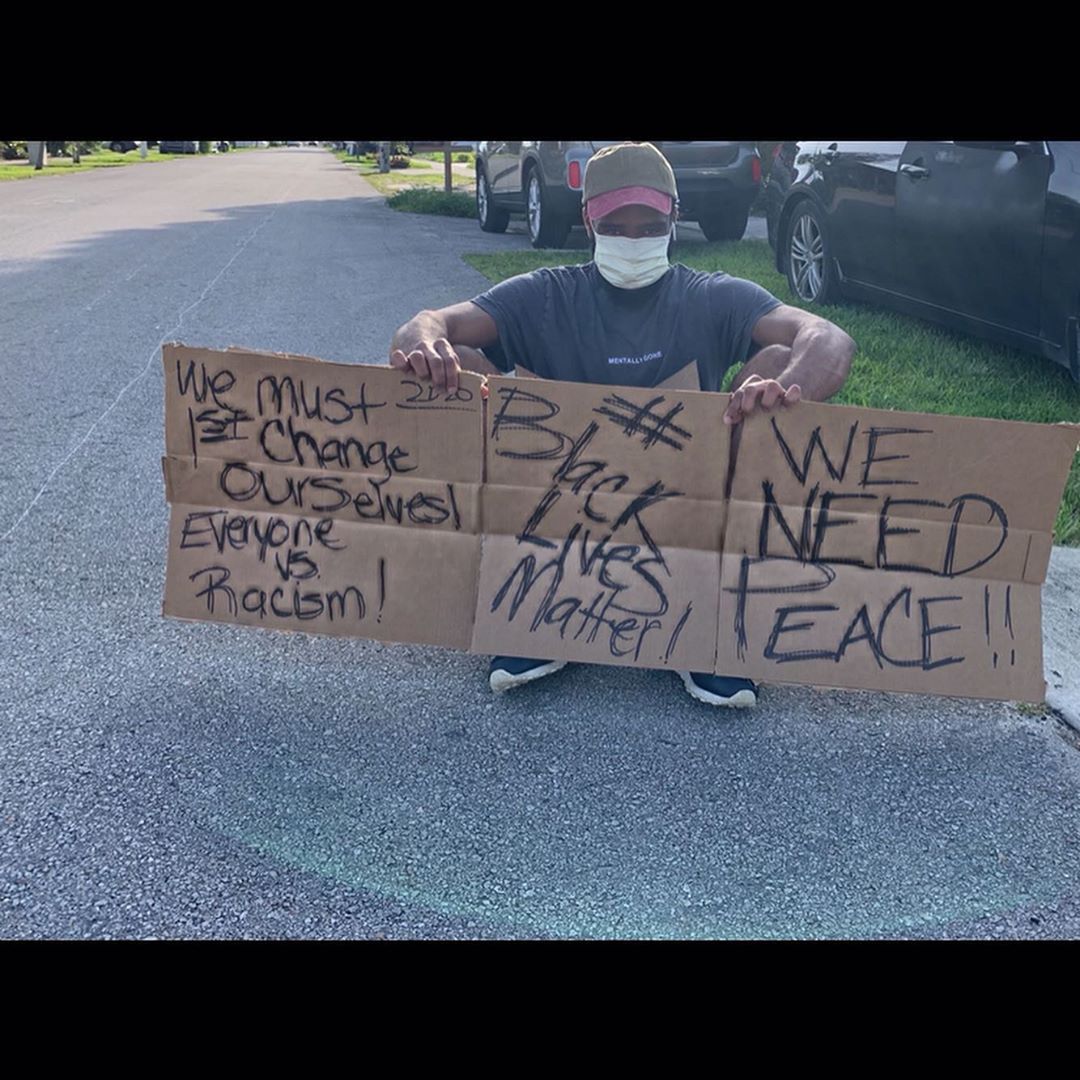 MENTALLY GONE
We Must 2020
1ST Change
Ourselves!
Everyone
vs.
Racism!
#
Black
Lives
Matter!
WE
NEED
PEACE!!